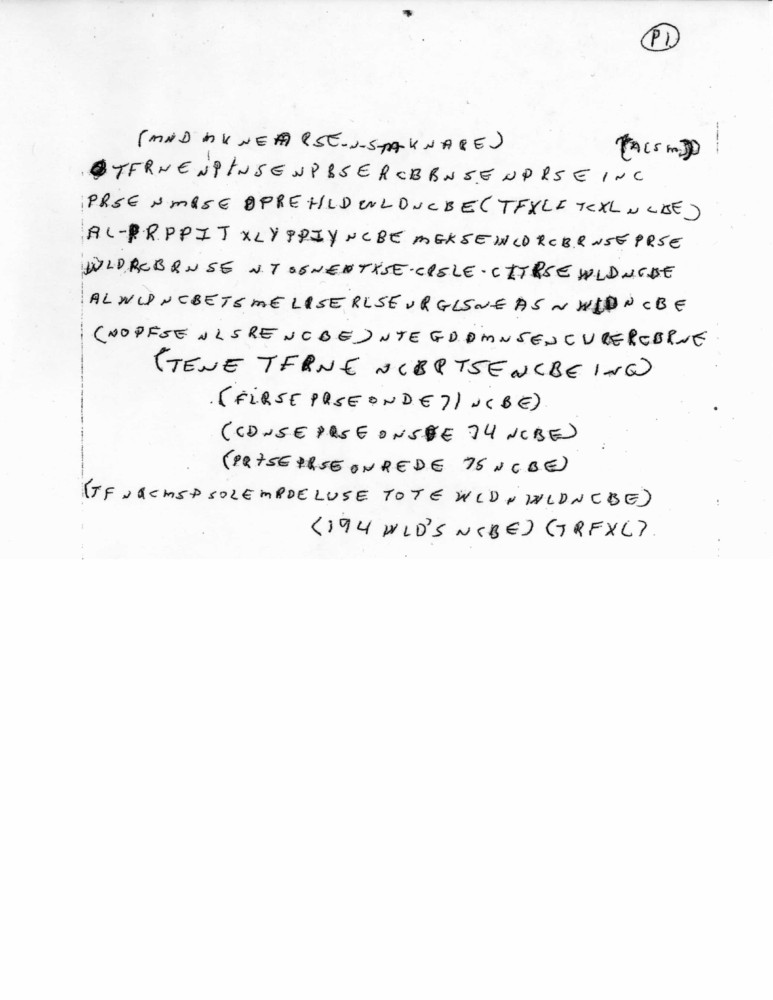 P1
(MND MKNEARSE-N-S-M-KNARE) (ACSM)
TFRNENPINSENPBSERCBBNSENPRSEINC
PRSENMRSEOPREHLDWLDNCBE(TFXLFTCXLNCBE)
AL-PRPPITXLYPPIYNCBEMGKSEWLDRCBRNSEPRSE
WLDRCBRNSENTOSNENTXSE-CRSLE-CITRSEWLDNCBE
ALWLPNCBETSMELRSERLSEURGLSNEASNWLDNCBE
(NOPFSENLSRENCBE)NTEGDDMNSENCURERCBRNE
(TENETFRNENCBRTSENCBEING)
(FLRSEPRSEONDE71NCBE)
(CDNSEPRSEONSDE74NCBE)
(PRTSEPRSEONREDE75NCBE)
(TFNQCMSPSOLEMRDELUSETOTEWLDNWLDNCBE)
(194WLD'SNCBE)(TRFXL)